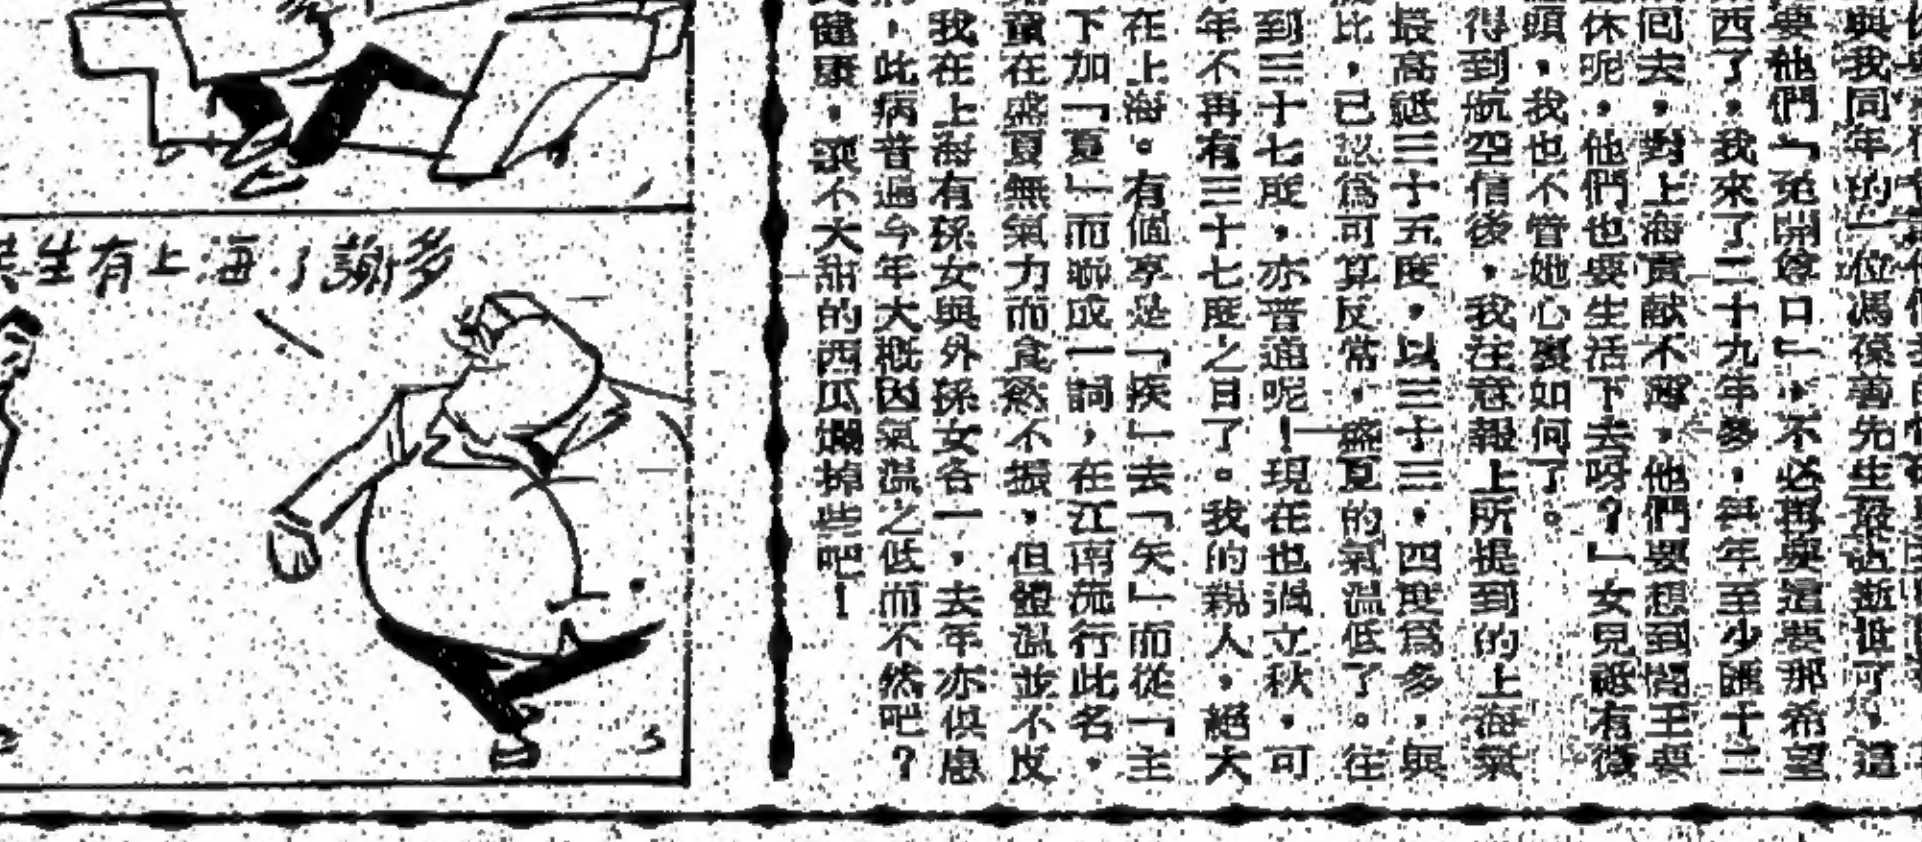 與我同年的一位馮葆善先生最近逝世了，這
要他們「免開尊口」，不必再與這要那希望
西了，我來了二十九年多，每年至少匯十二
回去，對上海貢献不薄，他們要想到閻王要
休呢，他們也要生活下去呀？」女兒祗有微
頭，我也不管她心裏如何了。
得到航空信後，我在意報上所提到的上海氣
最高祗三十五度，以三十三，四度爲多，與
比，已認爲可算反常，盛夏的氣温低了。往
到三十七度，亦普通呢！現在也過立秋，可
年不再有三十七度之日了。我的親人，絕大
在上海。有個享是「疾」去「矢」而從「主
下加「夏」而聯成一詞，在江南流行此名，
在盛夏無氣力而食慾不振，但體温並不反
我在上海有孫女與外孫女各一，去年亦俱患
，此病普遍今年大概因氣温之低而不然吧？
健康，談不大甜的西瓜爛掉些吧！
多謝了海上有生
3